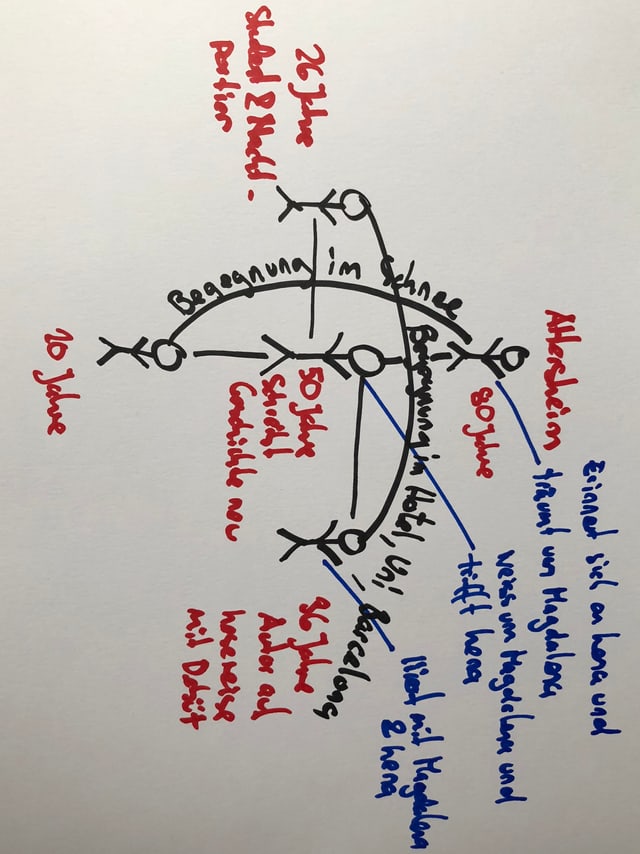 Altersheim
80 Jahre
Erinnert sich an Lena und
träumt von Magdalena
weiss um Magdalena und
trifft Lena
flirtet mit Magdalena
& Lena
Begegnung im Schnee
Begegnung in Hotel, Uni, Barcelona
26 Jahre
Student & Nacht-
portier
50 Jahre
schreibt
Geschichte neu
36 Jahre
Autor auf
Lesereise
mit Debüt
20 Jahre